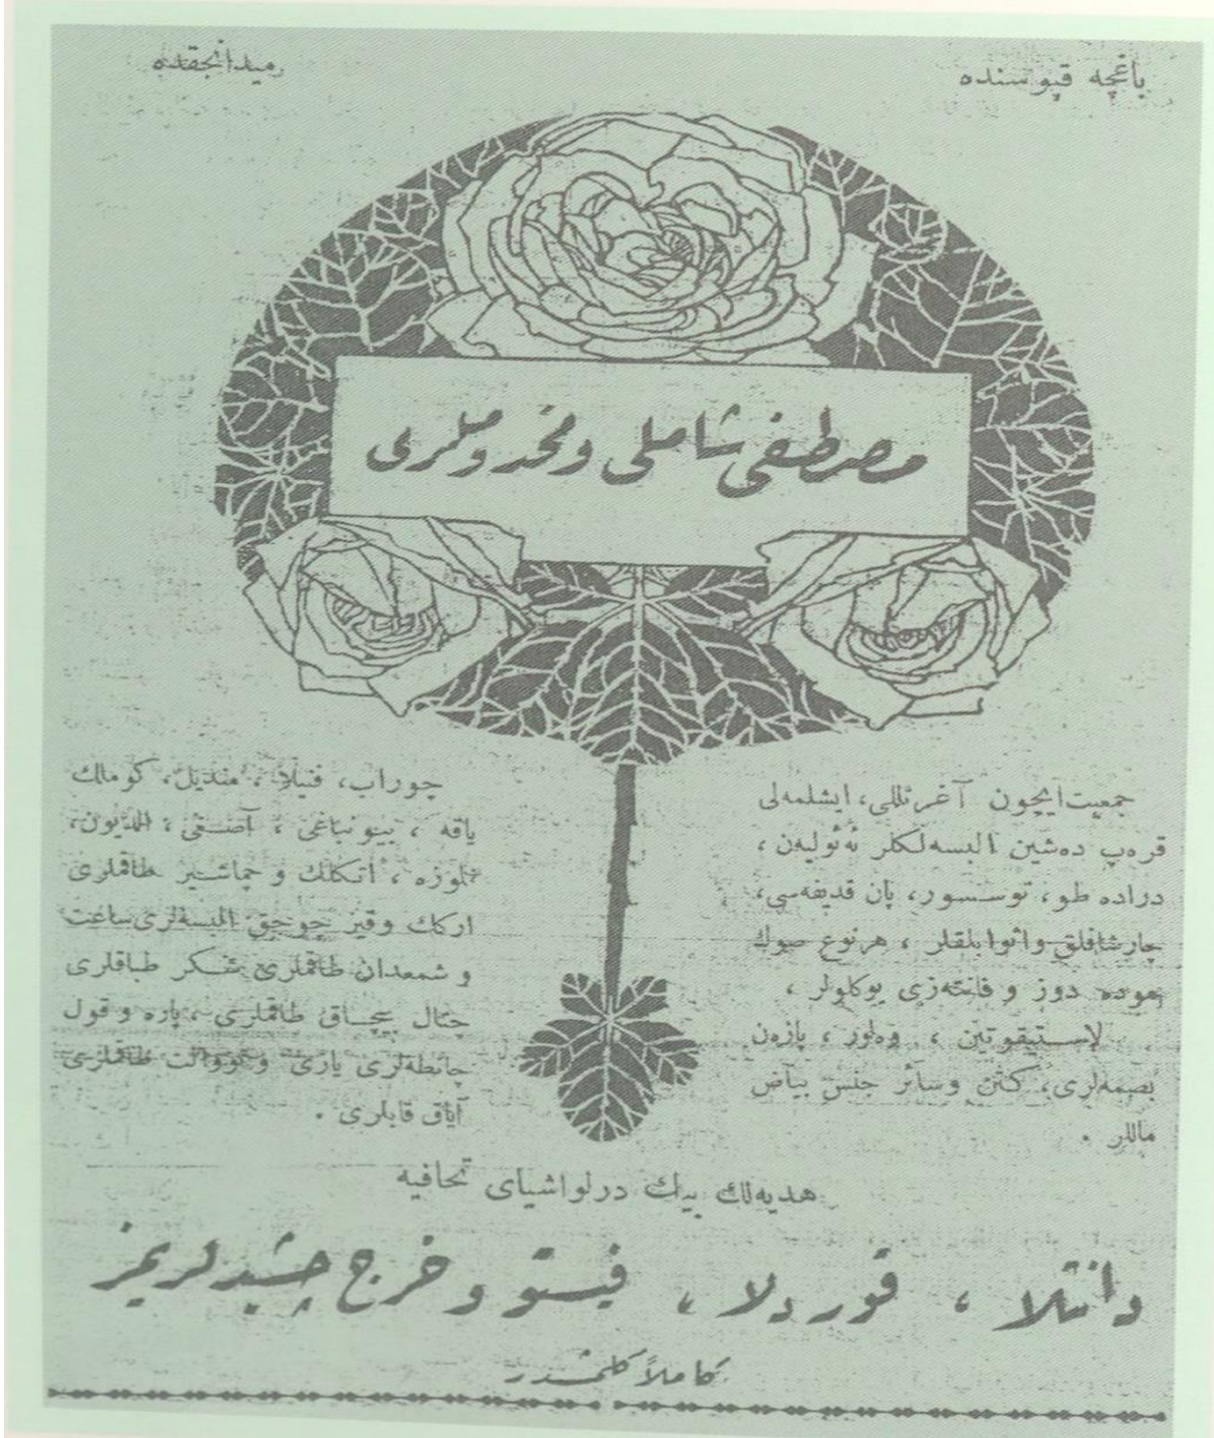 باغچه قپوسنده
میدانجقده
مصطفی شاملی ومخدوملری
جمعیت ایچون آغر تللی، ایشلمه‌لی
قره‌پ ده‌شین البسه‌لکلر ئه‌ئولیه‌ن ،
دراده طو ، توسسور ، پان قدیفه‌سی،
چارشافلق واثوابلقلر ، هرنوع صوك
موده دوز و فانته‌زی یوكلولر ،
لاستیقوتین ، وه‌لور ، پازه‌ن
بصمه‌لری، کتن وسائر جنس بیاض
ماللر .
چوراب، فنیلا ، مندیل، كوملك
یاقه ، بیونباغی ، آصقی ، الدیون،
بلوزه ، اتكلك و چماشیر طاقملری
اركك وقیز چوجق البسه‌لری ساعت
و شمعدان طاقملری شكر طباقلری
چتال بیچاق طاقملری ، پاره و قول
چانطه‌لری یازی و تووالت طاقملری
آیاق قابلری .
هدیه‌لك بیك درلو اشیای تحافیه
دانتلا ، قوردلا ، فیستو و خرج چشیدلریمز
كاملاً كلمشدر